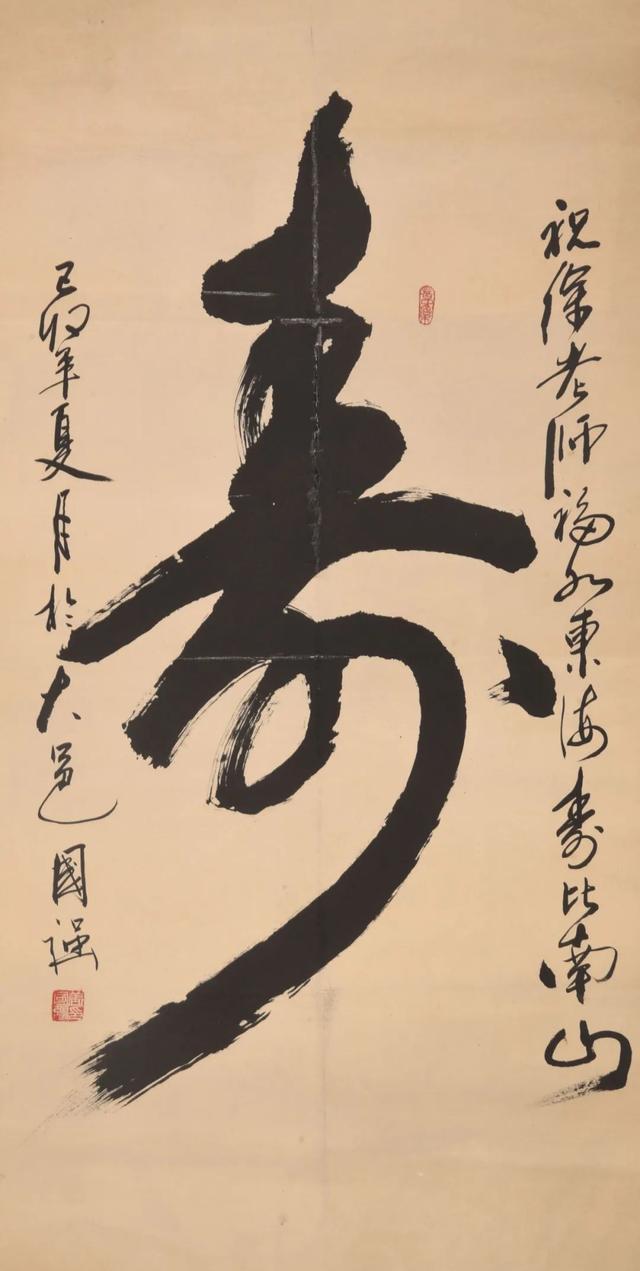 祝徐老师福如東海寿比南山
寿
己卯年夏月於大邑國强